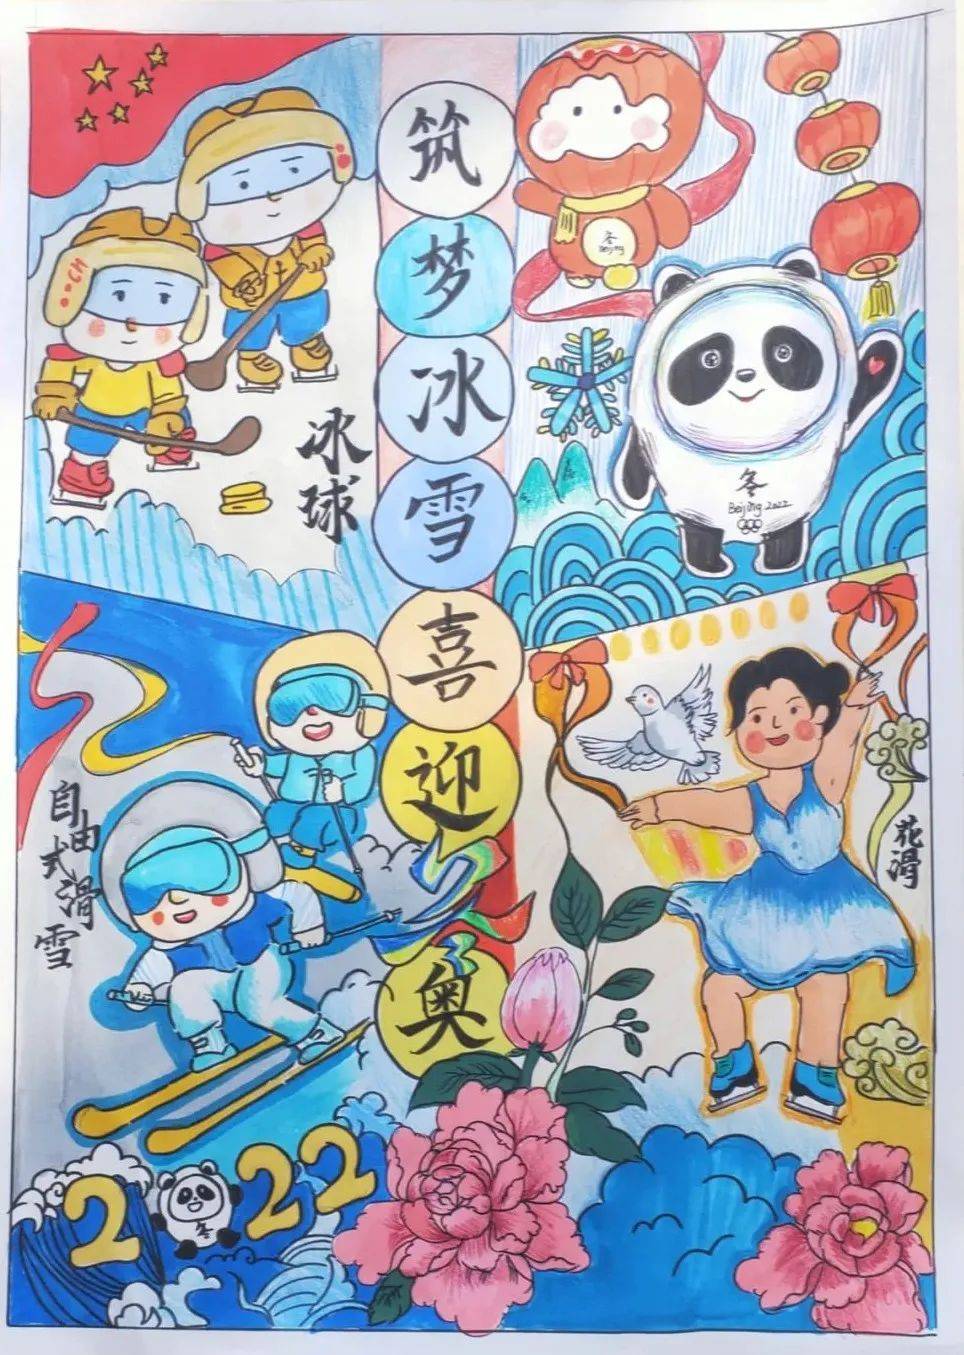 筑
梦
冰
雪
喜
迎
冬
奥
冰
球
冬
Beijing
冬
Beijing 2022
自由式滑雪
花滑
2 22
冬